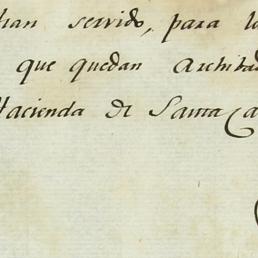 han servido, para lo
que quedan Archiba
Hacienda de Santa Ca